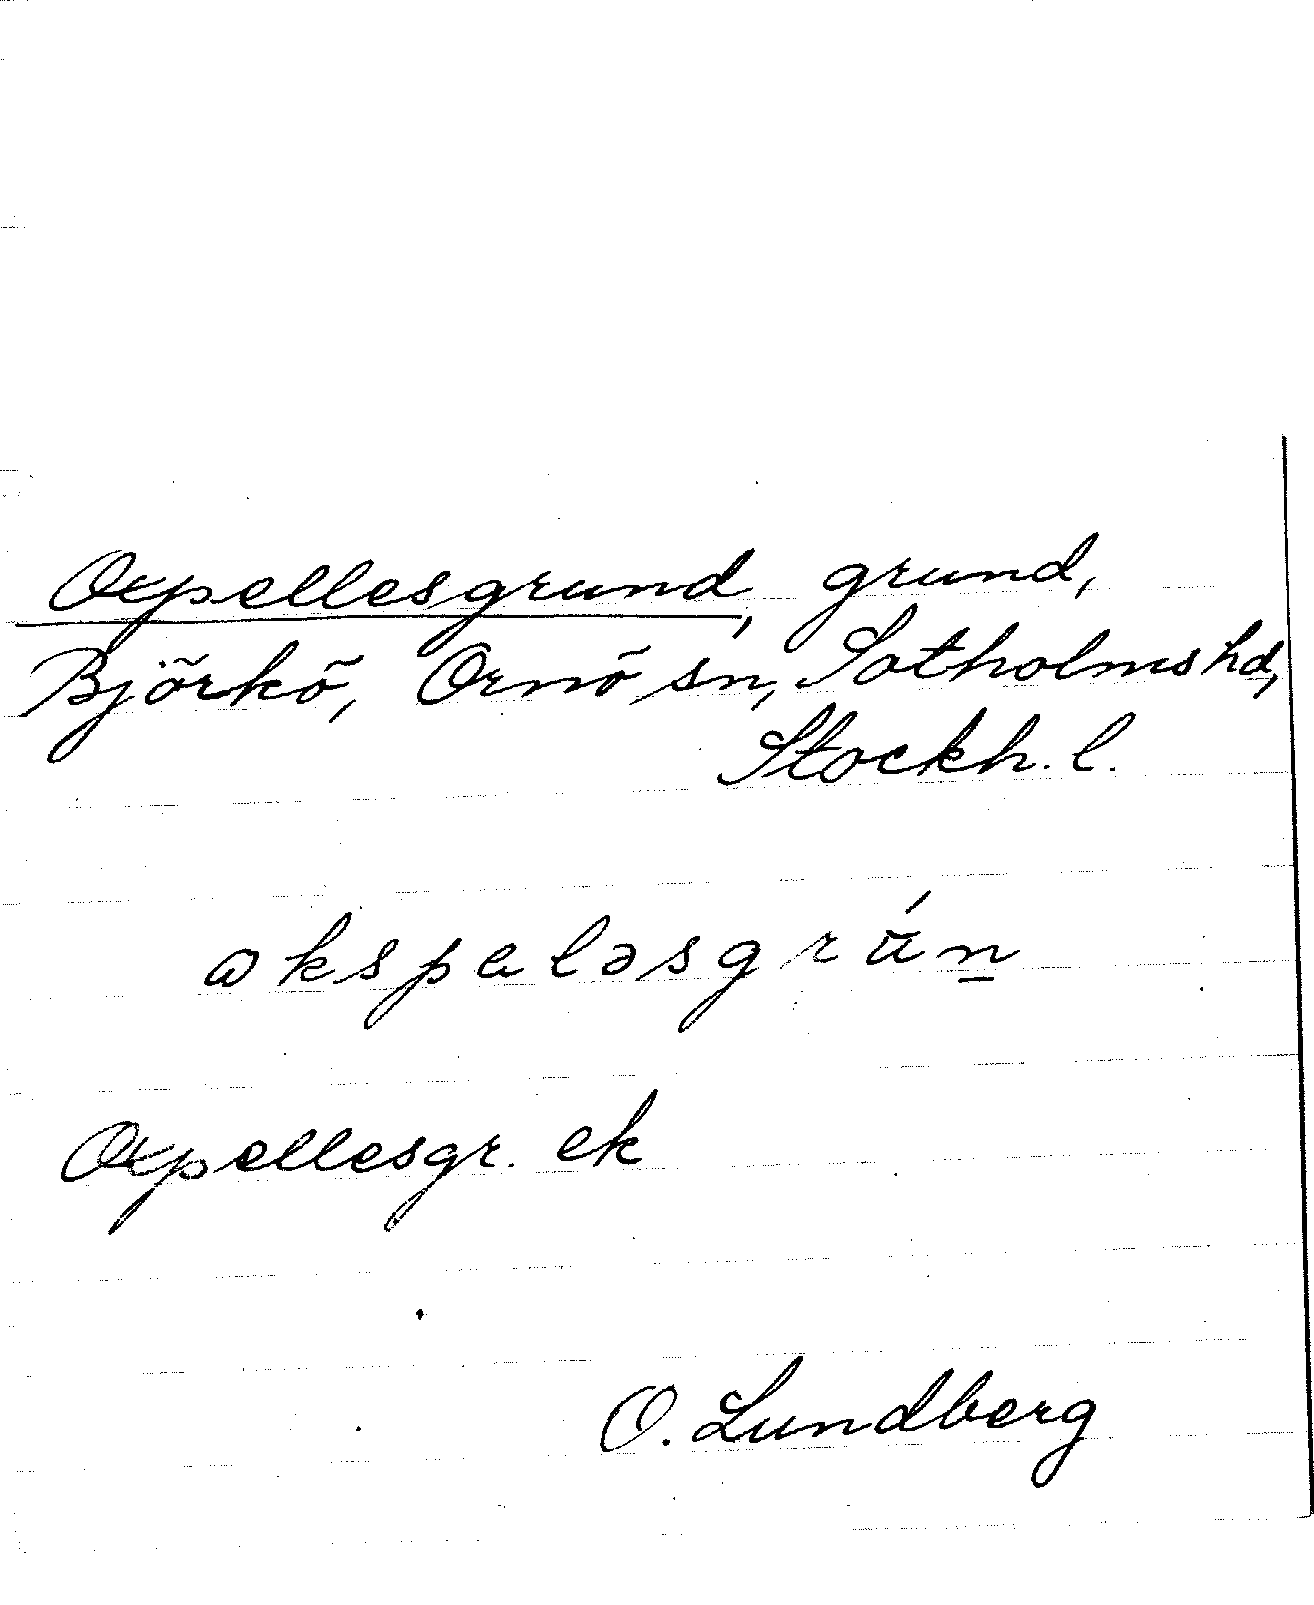 Oxpellesgrund, grund,
Björkö, Ornö sn, Sotholms hd,
Stockh. l.
ɷkspeləsgrún
Oxpellesgr. ek
O. Lundberg